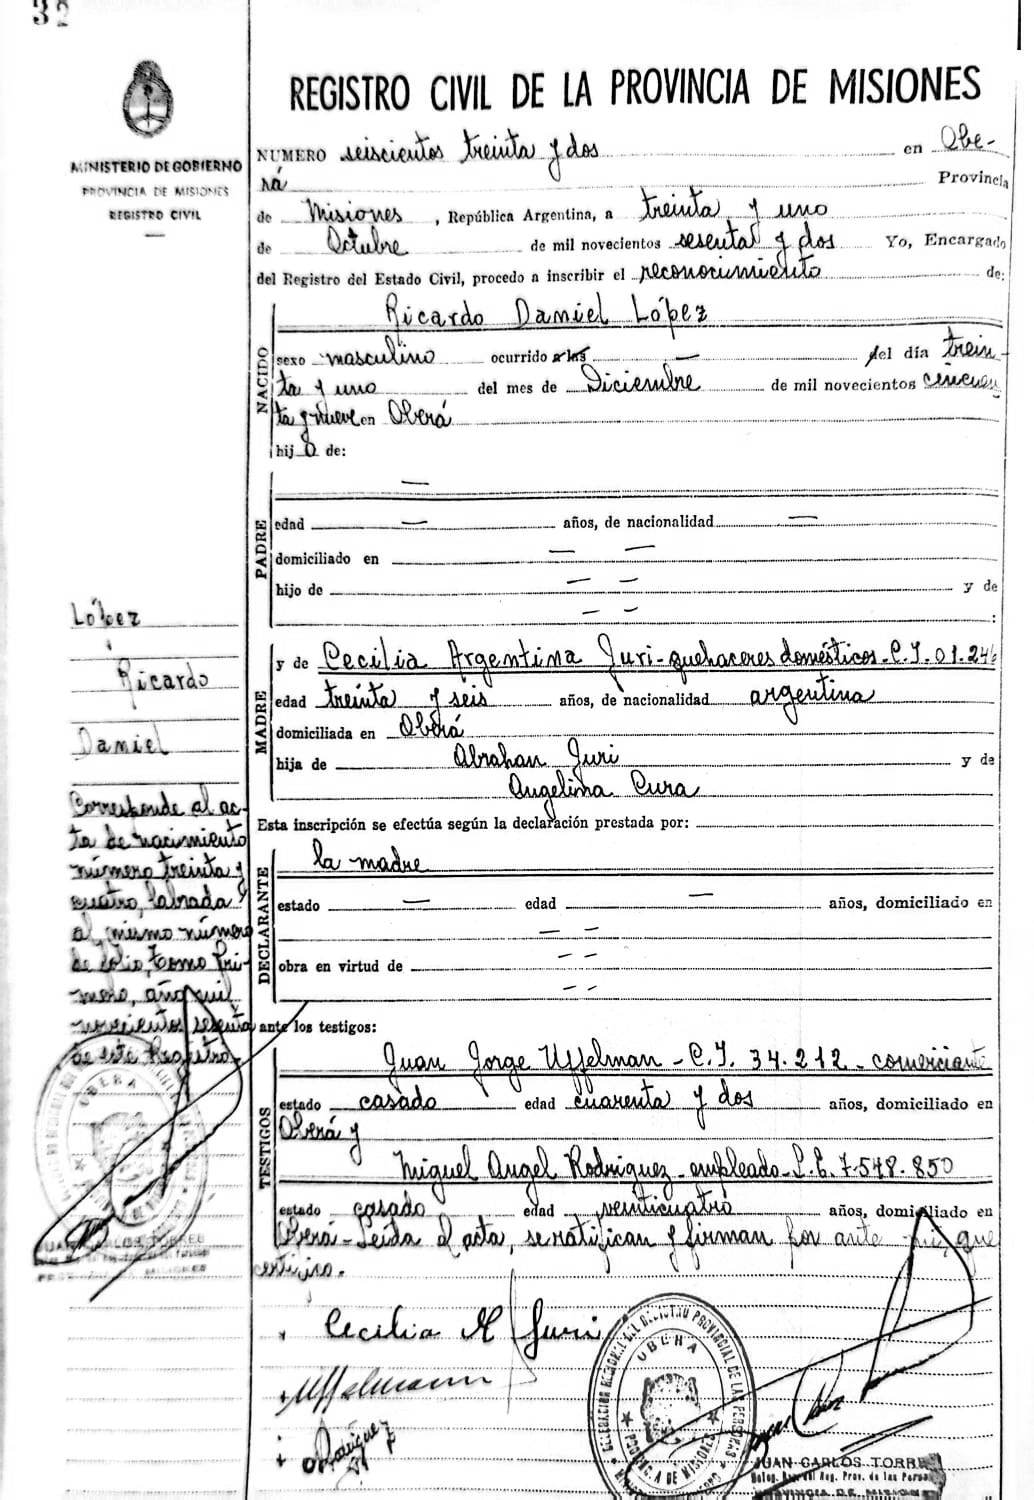 32
REGISTRO CIVIL DE LA PROVINCIA DE MISIONES
MINISTERIO DE GOBIERNO
PROVINCIA DE MISIONES
REGISTRO CIVIL
NUMERO seiscientos treinta y dos en Obe-
rá Provincia
de Misiones, República Argentina, a treinta y uno
de Octubre de mil novecientos sesenta y dos Yo, Encargado
del Registro del Estado Civil, procedo a inscribir el reconocimiento de:
NACIDO
Ricardo Daniel López
sexo masculino ocurrido a las — del día trein-
ta y uno del mes de Diciembre de mil novecientos cincuen
ta y nueve en Oberá
hijo de:
PADRE
—
edad — años, de nacionalidad —
domiciliado en — —
hijo de — — y de
— — :
MADRE
y de Cecilia Argentina Juri - quehaceres domésticos - C.I. 01.246
edad treinta y seis años, de nacionalidad argentina
domiciliada en Oberá
hija de Abrahan Juri y de
Angelina Cura
Esta inscripción se efectúa según la declaración prestada por:
DECLARANTE
la madre
estado — edad — años, domiciliado en
— —
obra en virtud de — —
— —
ante los testigos:
TESTIGOS
Juan Jorge Uffelman - C.I. 34.212 - comerciante
estado casado edad cuarenta y dos años, domiciliado en
Oberá y
Miguel Angel Rodriguez - empleado - L.E. 7.548.850
estado casado edad veinticuatro años, domiciliado en
Oberá - Leida el acta, se ratifican y firman por ante mi, que
certifico.
López
Ricardo
Daniel
Corresponde al ac-
ta de nacimiento
número treinta y
cuatro, labrada
al mismo número
de folio, Tomo Pri-
mero, año mil
novecientos sesenta
de este Registro.
OBERA
JUAN CARLOS TORRES
Cecilia M Juri
Uffelmann
Rodriguez
DELEGACION REGIONAL DEL REGISTRO PROVINCIAL DE LAS PERSONAS
OBERA
PROVINCIA DE MISIONES
JUAN CARLOS TORRES
Reg. Prov. de las Personas
PROVINCIA DE MISIONES